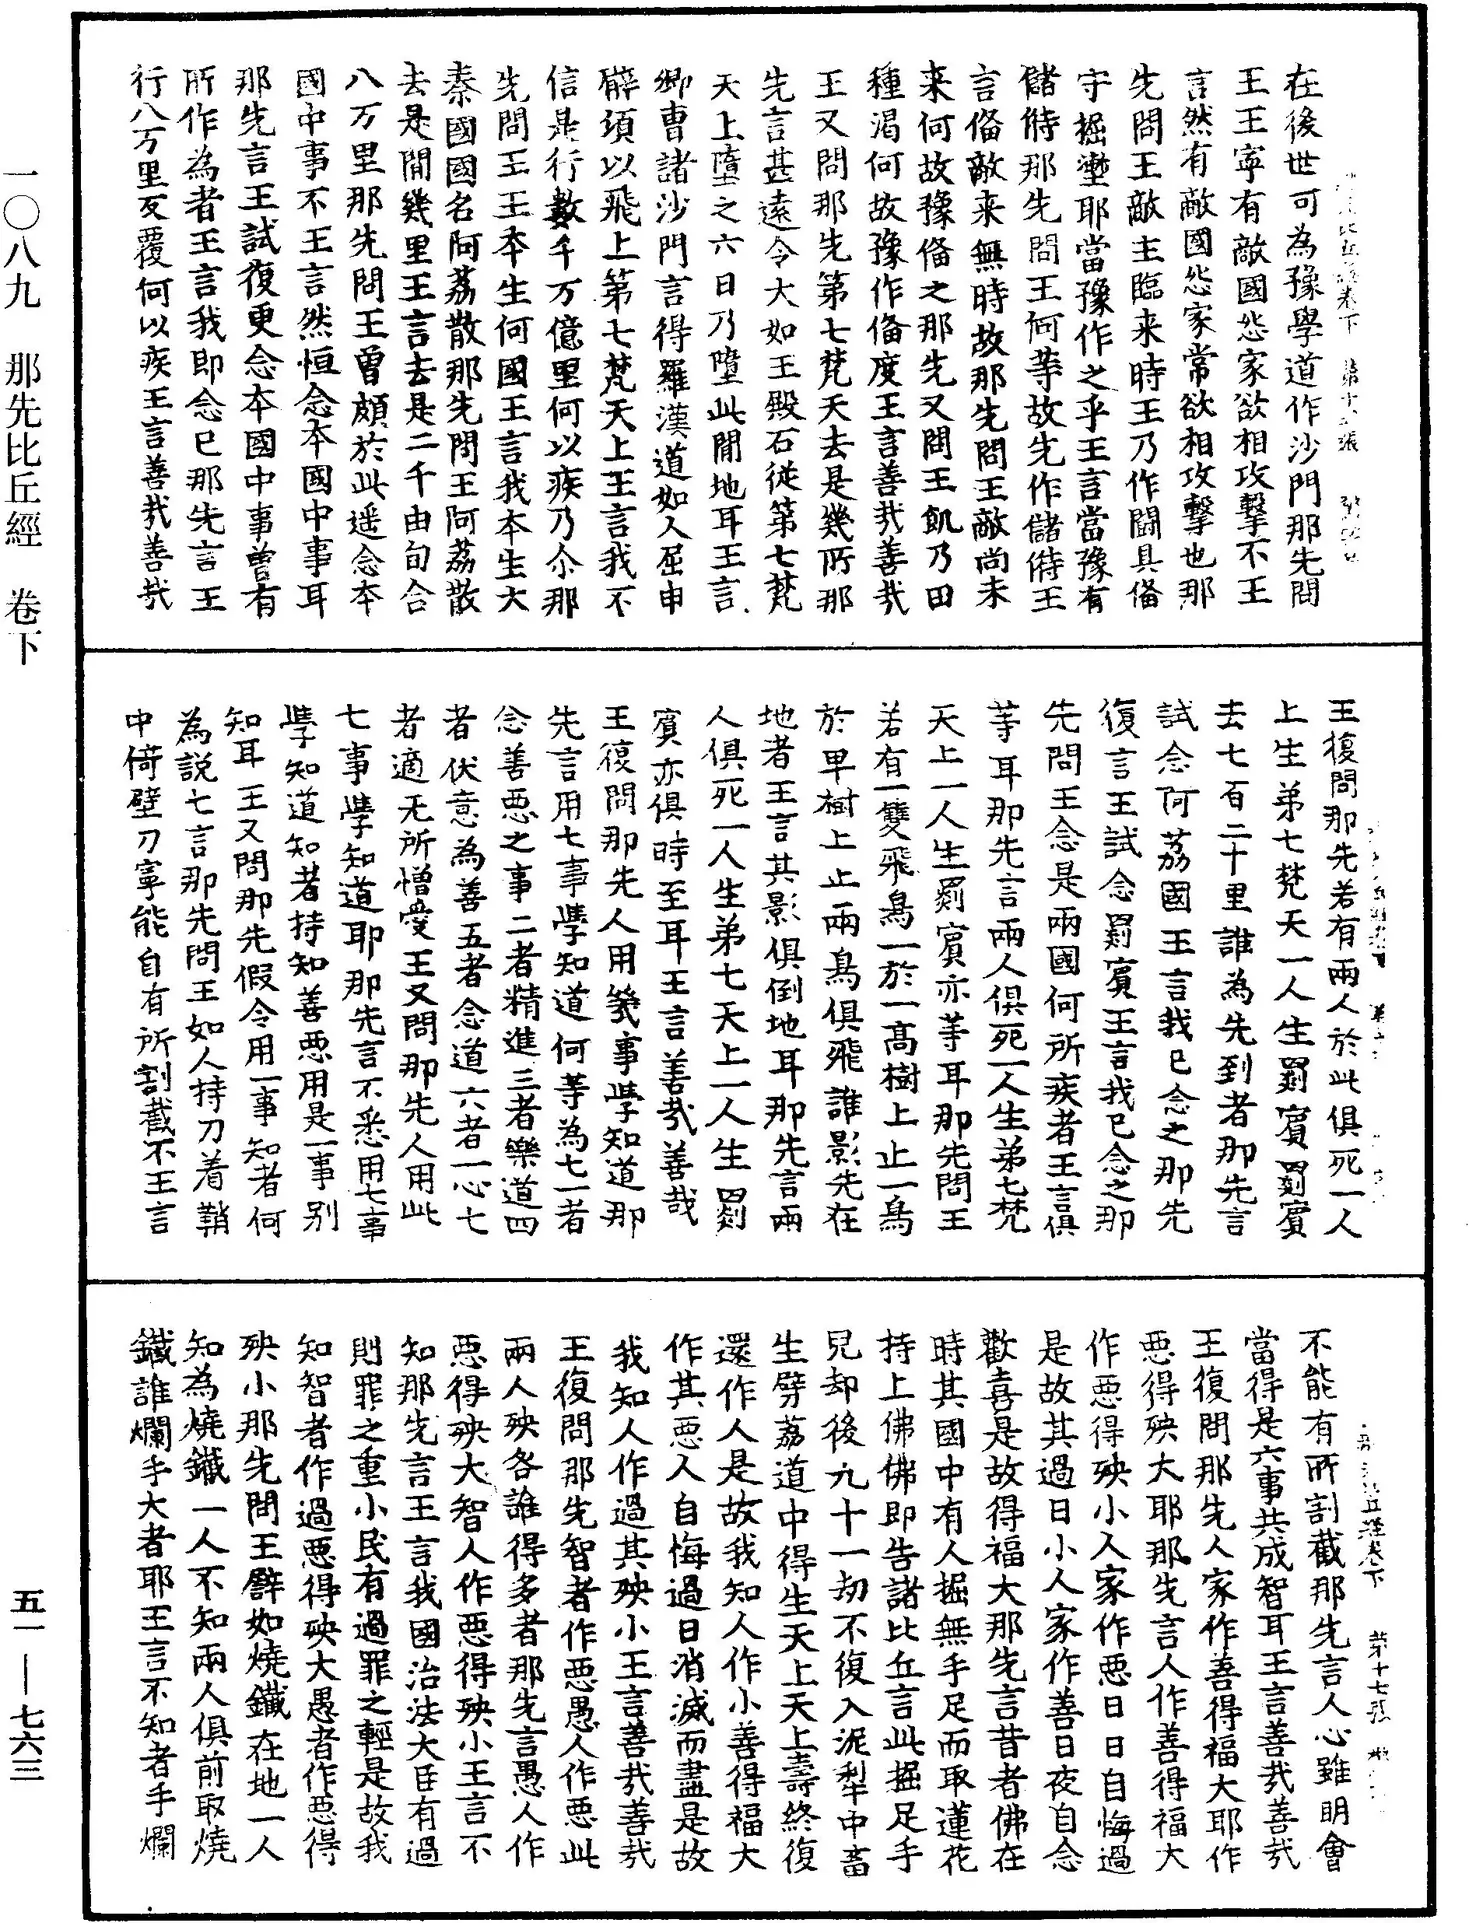 一〇八九 那先比丘經 卷下
五一—七六三
在後世可為豫學道作沙門那先問
王王寧有敵國怨家欲相攻擊不王
言然有敵國怨家常欲相攻擊也那
先問王敵主臨来時王乃作鬪具備
守掘壍耶當豫作之乎王言當豫有
儲偫那先問王何等故先作儲偫王
言備敵来無時故那先問王敵尚未
来何故豫備之那先又問王飢乃田
種渴何故豫作備度王言善㦲善㦲
王又問那先第七梵天去是幾所那
先言甚遠令大如王殿石從第七梵
天上墮之六日乃墮此間地耳王言
卿曹諸沙門言得羅漢道如人屈申
臂頃以飛上第七梵天上王言我不
信是行數千万億里何以疾乃尒那
先問王王本生何國王言我本生大
秦國國名阿荔散那先問王阿荔散
去是間幾里王言去是二千由旬合
八万里那先問王曾頗於此遥念本
國中事不王言然恒念本國中事耳
那先言王試復更念本國中事曾有
所作為者王言我即念已那先言王
行八万里反覆何以疾王言善㦲善㦲
王復問那先若有兩人於此俱死一人
上生弟七梵天一人生罽賓罽賓
去七百二十里誰為先到者那先言
試念阿荔國王言我已念之那先
復言王試念罽賓王言我已念之那
先問王念是兩國何所疾者王言俱
等耳那先言兩人俱死一人生弟七梵
天上一人生罽賓亦等耳那先問王
若有一雙飛鳥一於一高樹上止一鳥
於卑樹上止兩鳥俱飛誰影先在
地者王言其影俱倒地耳那先言兩
人俱死一人生弟七天上一人生罽
賓亦俱時至耳王言善㦲善哉
王復問那先人用幾事學知道那
先言用七事學知道何等為七一者
念善惡之事二者精進三者樂道四
者伏意為善五者念道六者一心七
者適无所憎愛王又問那先人用此
七事學知道耶那先言不悉用七事
學知道知者持知善惡用是一事別
知耳王又問那先假令用一事知者何
為說七言那先問王如人持刀着鞘
中倚壁刀寧能自有所割截不王言
不能有所割截那先言人心雖明會
當得是六事共成智耳王言善㦲善㦲
王復問那先人家作善得福大耶作
惡得殃大耶那先言人作善得福大
作惡得殃小人家作惡日日自悔過
是故其過日小人家作善日夜自念
歡喜是故得福大那先言昔者佛在
時其國中有人掘無手足而取蓮花
持上佛佛即告諸比丘言此掘足手
兒却後九十一劫不復入泥犁中畜
生薜荔道中得生天上天上壽終復
還作人是故我知人作小善得福大
作其惡人自悔過日消滅而盡是故
我知人作過其殃小王言善㦲善㦲
王復問那先智者作惡愚人作惡此
兩人殃各誰得多者那先言愚人作
惡得殃大智人作惡得殃小王言不
知那先言王言我國治法大臣有過
則罪之重小民有過罪之輕是故我
知智者作過惡得殃大愚者作惡得
殃小那先問王譬如燒鐵在地一人
知為燒鐵一人不知兩人俱前取燒
鐵誰爛手大者耶王言不知者手爛